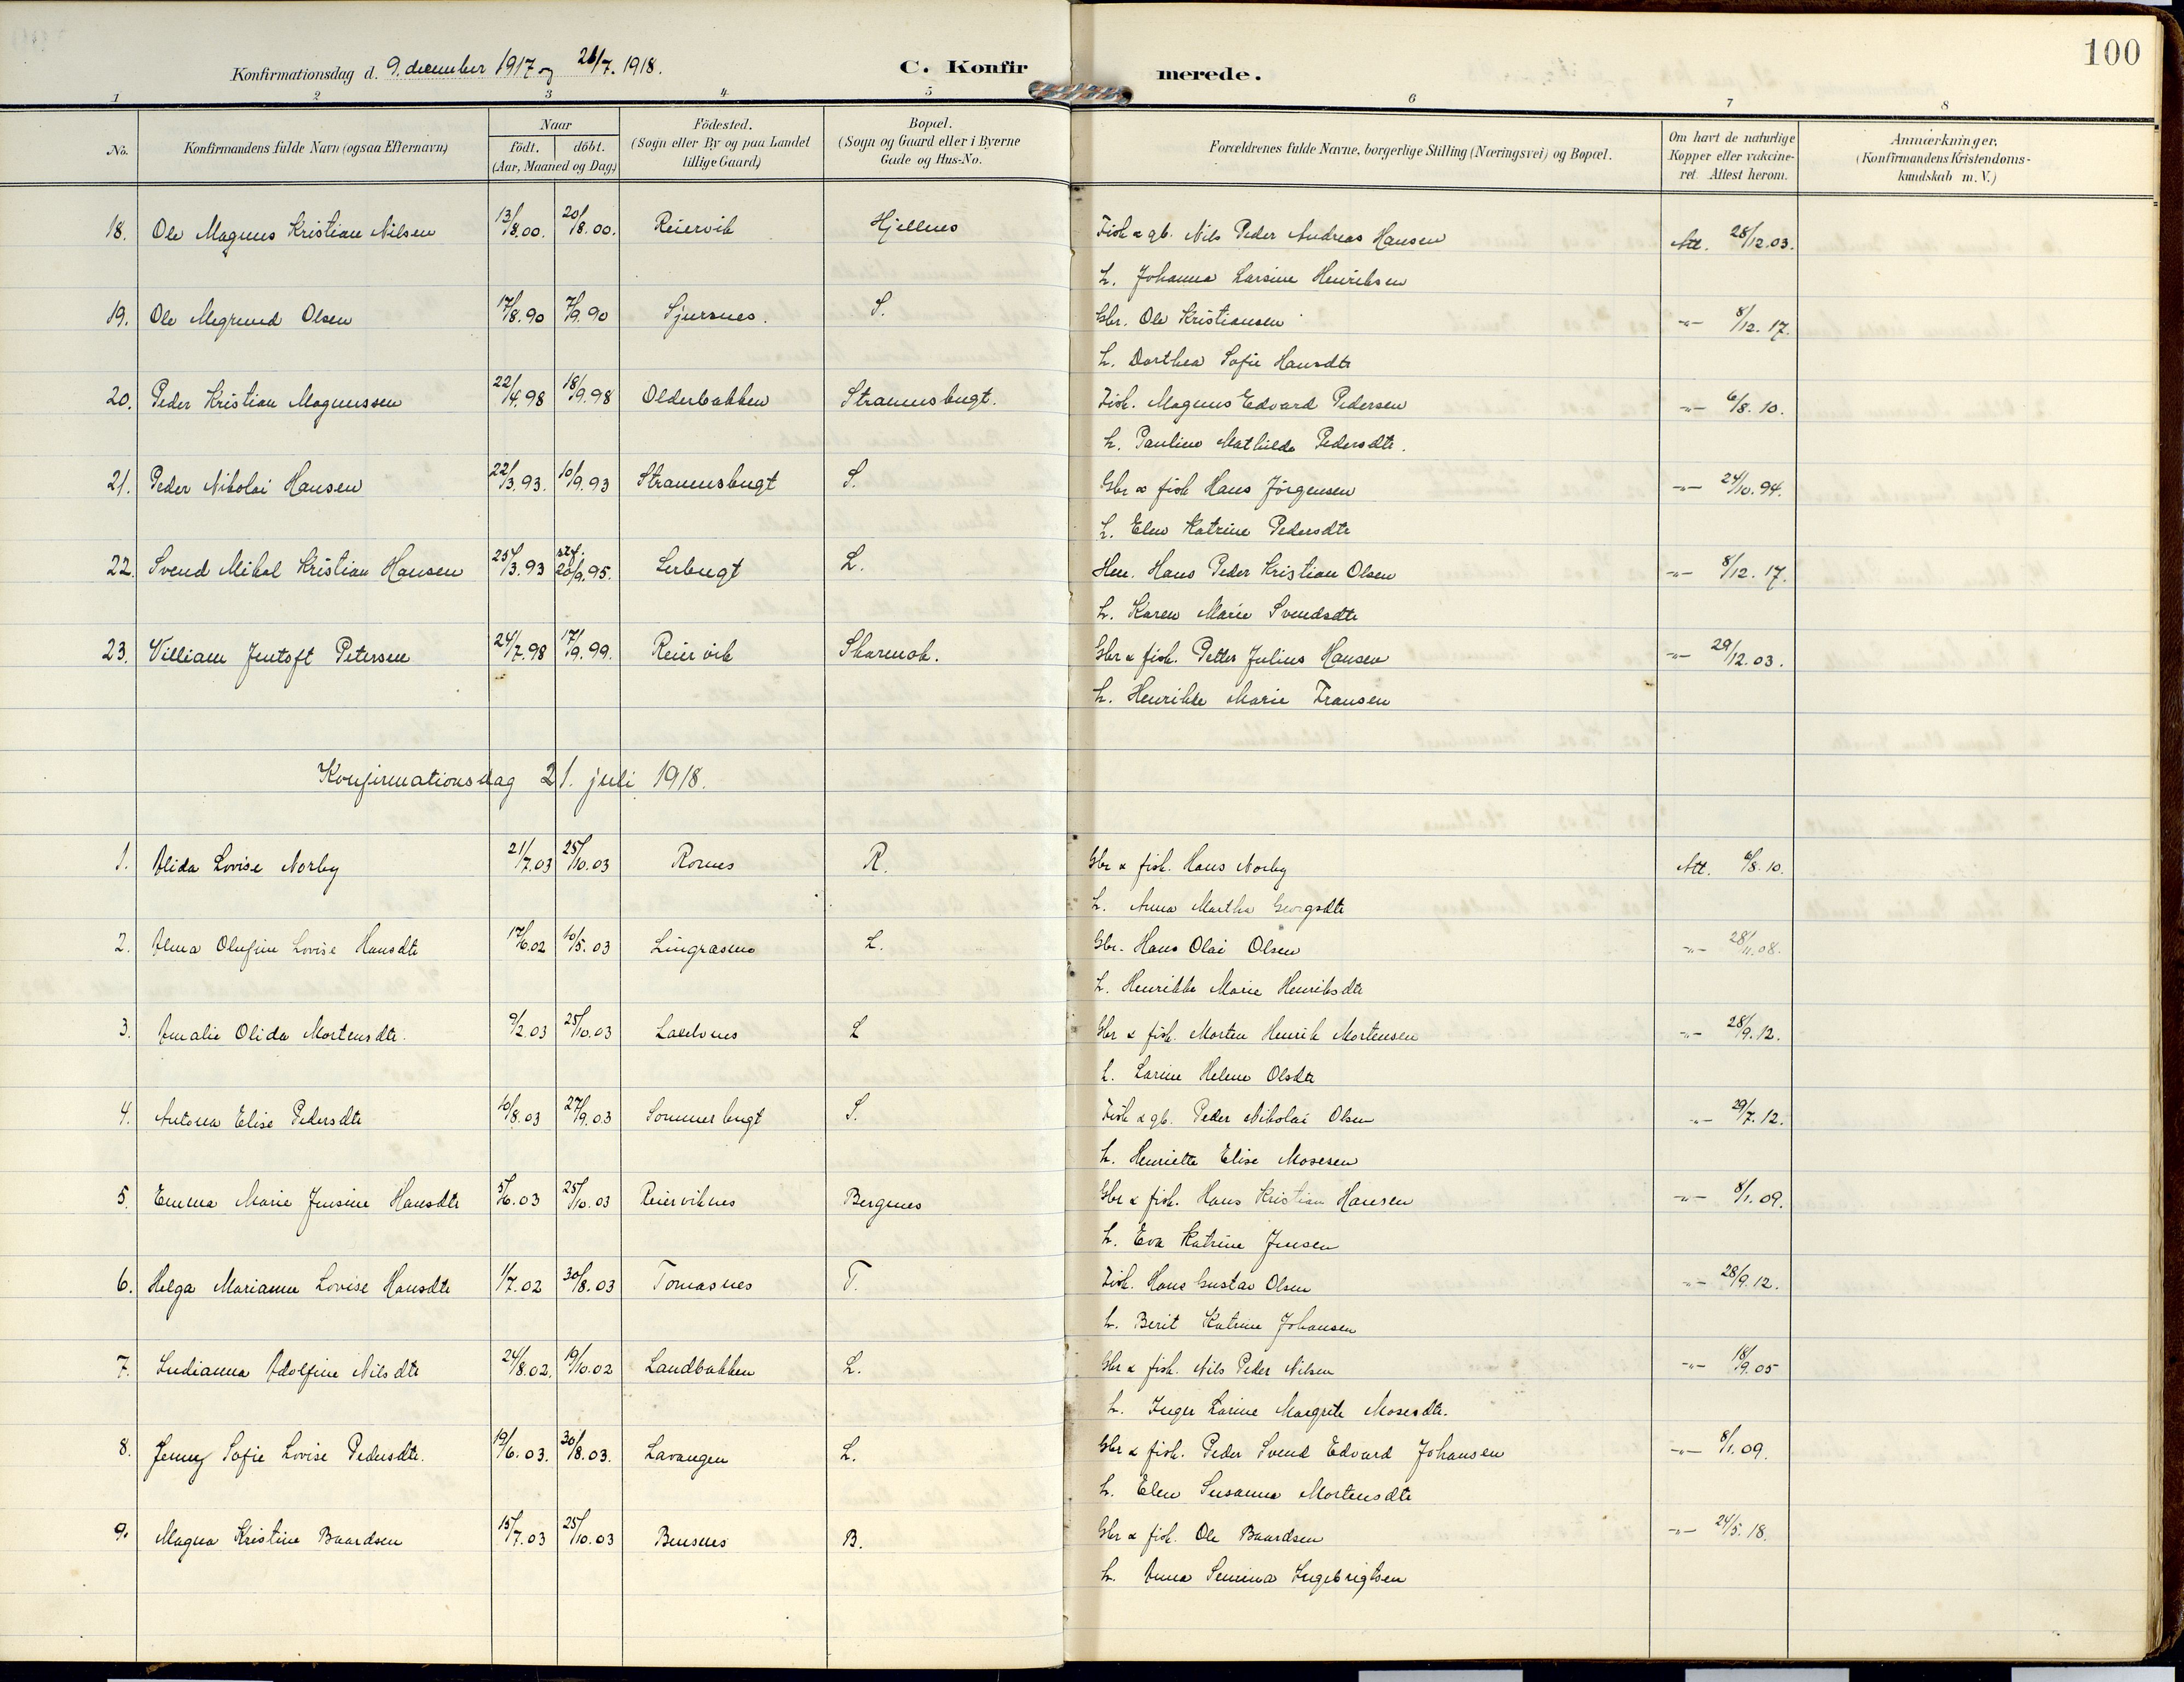 Konfirmationsdag d. 9. december 1917 og 21/7. 1918.
C. Konfirmerede.
100
1 2 3 4 5 6 7 8
No.
Konfirmandens fulde Navn (ogsaa Efternavn)
Naar
födt. döbt.
(Aar, Maaned og Dag)
Födested.
(Sogn eller By og paa Landet
tillige Gaard)
Bopæl.
(Sogn og Gaard eller i Byerne
Gade og Hus-No.
Forældrenes fulde Navne, borgerlige Stilling (Næringsvei) og Bopæl.
Om havt de naturlige
Kopper eller vakcine-
ret. Attest herom.
Anmærkninger.
(Konfirmandens Kristendoms-
kundskab m. V.)
18. Ole Magnus Kristian Nilsen 13/8.00. 20/8.00. Reiervik Hjellnes Fisk & gb. Nils Peder Andreas Hansen Att. 28/12.03.
h. Johanna Larsine Henriksen
19. Ole Megrund Olsen 17/8.90 7/9.90 Sjursnes. S. Gbr. Ole Kristiansen -"- 8/12.17.
h. Dorthea Sofie Hansdtr
20. Peder Kristian Magnussen 22/4.98 18/9.98 Olderbakken Stramsbugt. Fisk. Magnus Edvard Pedersen -"- 6/8.10.
h. Pauline Mathilde Pedersdtr.
21. Peder Nikolai Hansen 22/3.93. 10/9.93 Stramsbugt S. Gbr & fisk Hans Jörgensen -"- 24/10.94.
h. Elen Katrine Pedersdtr
22. Svend Mikal Kristian Hansen 25/3.93 stf. 20/9.95. Lerbugt L. Hans Peder Kristian Olsen -"- 8/12.17.
h. Karen Marie Svendsdtr
23. William Jentoft Petersen 24/7.98 17/9.99. Reiervik Skarmok. Gbr & fisk. Petter Julius Hansen -"- 29/12.03.
h. Henrikke Marie Fransen
Konfirmationsdag 21. juli 1918.
1. Alida Lovise Norby 21/7.03 25/10.03 Rornes R. Gbr & fisk. Hans Norby Att. 6/8.10.
h. Anna Martha Georgsdtr
2. Alma Olufine Lovise Hansdtr 17/6.02 10/5.03 Lingrasnes L. Gbr. Hans Olai Olsen -"- 28/11.08.
h. Henrikke Marie Henriksdtr
3. Amalie Olida Mortensdtr. 9/2.03 25/10.03 Lakselvnes L Gbr & fisk. Morten Henrik Mortensen -"- 28/9.12.
h. Larine Helene Olsdtr
4. Antona Elise Pedersdtr 10/8.03 27/9.03 Sommerbugt S. Fisk & gb. Peder Nikolai Olsen -"- 29/7.12.
h. Henriette Elise Mosesen
5. Emma Marie Jensine Hansdtr 5/6.03 25/10.03 Reierviknes Bergnes Gbr & fisk. Hans Kristian Hansen -"- 8/1.09.
h. Eva Katrine Jensen
6. Helga Marianne Lovise Hansdtr 1/7.02 30/8.03 Tomasnes T. Fisk. Hans Gustav Olsen -"- 28/9.12.
h. Berit Katrine Johansen
7. Indianna Adolfine Nilsdtr 24/8.02. 19/10.02 Landbakken L. Gbr & fisk. Nils Peder Nilsen -"- 18/9.05
h. Inger Larine Margrete Mosesdtr.
8. Jenny Sofie Lovise Pedersdtr. 19/6.03. 30/8.03. Lavangen L. Gbr & fisk. Peder Svend Edvard Johansen -"- 8/1.09.
h. Elen Susanna Mortensdtr
9. Magna Kristine Baardsen 15/7.03 25/10.03 Bensnes B. Gbr & fisk. Ole Baardsen -"- 24/5.18.
h. Anna Semina Ingebrigtsen